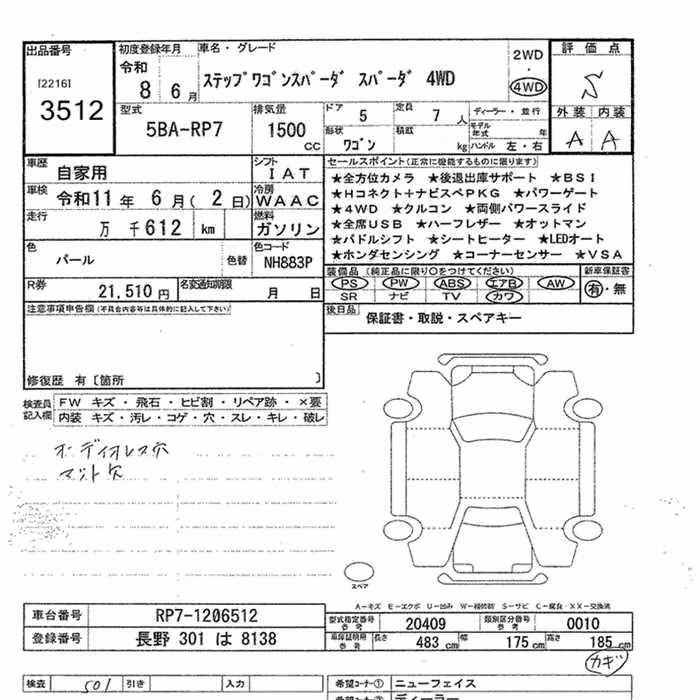 出品番号
[2216]
3512
初度登録年月
令和
8 6月
車名・グレード
ステップワゴンスパーダ スパーダ 4WD
2WD
・
4WD
評価点
S
外装 内装
A A
型式
5BA-RP7
排気量
1500
CC
ドア
5
定員
7 人
形状
ワゴン
積載
kg
ディーラー・並行
モデル年式 年
ハンドル 左・右
車歴
自家用
シフト
IAT
車検
令和11年 6月( 2日)
冷房
WAAC
走行
万 千612 km
燃料
ガソリン
色
パール
色替
色コード
NH883P
R券
21,510円
名変通知期限
月 日
セールスポイント(正常に機能するものに限ります)
★全方位カメラ ★後退出庫サポート ★BSI
★Hコネクト+ナビスペPKG ★パワーゲート
★4WD ★クルコン ★両側パワースライド
★全席USB ★ハーフレザー ★オットマン
★パドルシフト ★シートヒーター ★LEDオート
★ホンダセンシング ★コーナーセンサー ★VSA
装備品 (純正品に限り○をつけてください)
PS PW ABS エアB AW
SR ナビ TV カワ
新車保証書
有・無
後日品
保証書・取説・スペアキー
注意事項申告欄(不具合内容等は具体的に記入して下さい)
修復歴 有〔箇所 〕
検査員
記入欄
FW キズ・飛石・ヒビ割・リペア跡・×要
内装 キズ・汚レ・コゲ・穴・スレ・キレ・破レ
オーディオレス穴
マット欠
スペア
A-キズ E-エクボ U-凹み W-補修跡 S-サビ C-腐食・XX-交換済
車台番号
RP7-1206512
登録番号
長野 301 は 8138
型式指定番号
参考
20409
類別区分番号
参考
0010
車体証明用
参考
長さ
483 cm
幅
175 cm
高さ
185 cm
カギ
検査
501
引き
入力
希望コーナー①
ニューフェイス
希望コーナー②
ディーラー